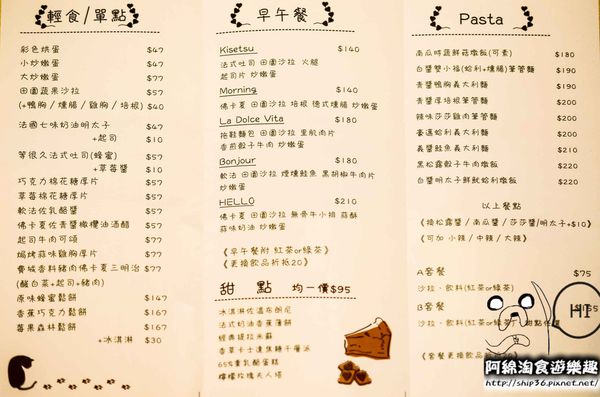 輕食/單點
彩色烘蛋 $47
小炒嫩蛋 $47
大炒嫩蛋 $77
田園蔬果沙拉 $57
(+鴨胸/燻腸/雞胸/培根) $40
法國七味奶油明太子 $47
+起司 $10
等很久法式吐司(蜂蜜) $57
+草莓醬 $10
巧克力棉花糖厚片 $57
草莓棉花糖厚片 $57
軟法佐乳酪醬 $57
佛卡夏佐青醬橄欖油酒醋 $57
起司牛肉可頌 $77
焗烤蒜味雞胸厚片 $77
費城香料豬肉佛卡夏三明治 $77
(酸白菜+起司+豬肉)
原味蜂蜜鬆餅 $147
香蕉巧克力鬆餅 $167
莓果森林鬆餅 $167
+冰淇淋 $30
早午餐
Kisetsu $140
法式吐司 田園沙拉 火腿
起司片 炒嫩蛋
Morning $140
佛卡夏 田園沙拉 培根 德式燻腸 炒嫩蛋
La Dolce Vita $180
拖鞋麵包 田園沙拉 里肌肉片
香煎骰子牛肉 炒嫩蛋
Bonjour $180
軟法 田園沙拉 煙燻鮭魚 黑胡椒牛肉片
炒嫩蛋
HELLO $210
佛卡夏 田園沙拉 無骨牛小排 蒜酥
蒜味奶油 炒嫩蛋
《早午餐附 紅茶or綠茶》
《更換飲品折抵20》
甜 點 均一價$95
冰淇淋佐溫布朗尼
法式奶油香蕉薄餅
經典提拉米蘇
香草卡士達焦糖千層派
65%重乳酪蛋糕
檸檬玫瑰夫人塔
Pasta
南瓜時蔬鮮菇燉飯(可素) $180
白醬雙小福(蛤利+燻腸)筆管麵 $190
青醬鴨胸義大利麵 $190
青醬厚培根筆管麵 $200
辣味莎莎雞肉筆管麵 $200
義大利麵 $200
義醬鮭魚義大利麵 $210
黑松露骰子牛肉燉飯 $220
白醬明太子鮮魷蛤利燉飯 $220
以上餐點
《換松露醬/南瓜醬/莎莎醬/明太子+$10》
《可加 小辣/中辣/大辣》
A套餐 $75
沙拉、飲料(紅茶or綠茶)
B套餐
沙拉、飲料(紅茶or綠茶)、甜點
《套餐更換飲品折抵20》
HI
阿綿淘食遊樂趣
http://ship36.pixnet.net/